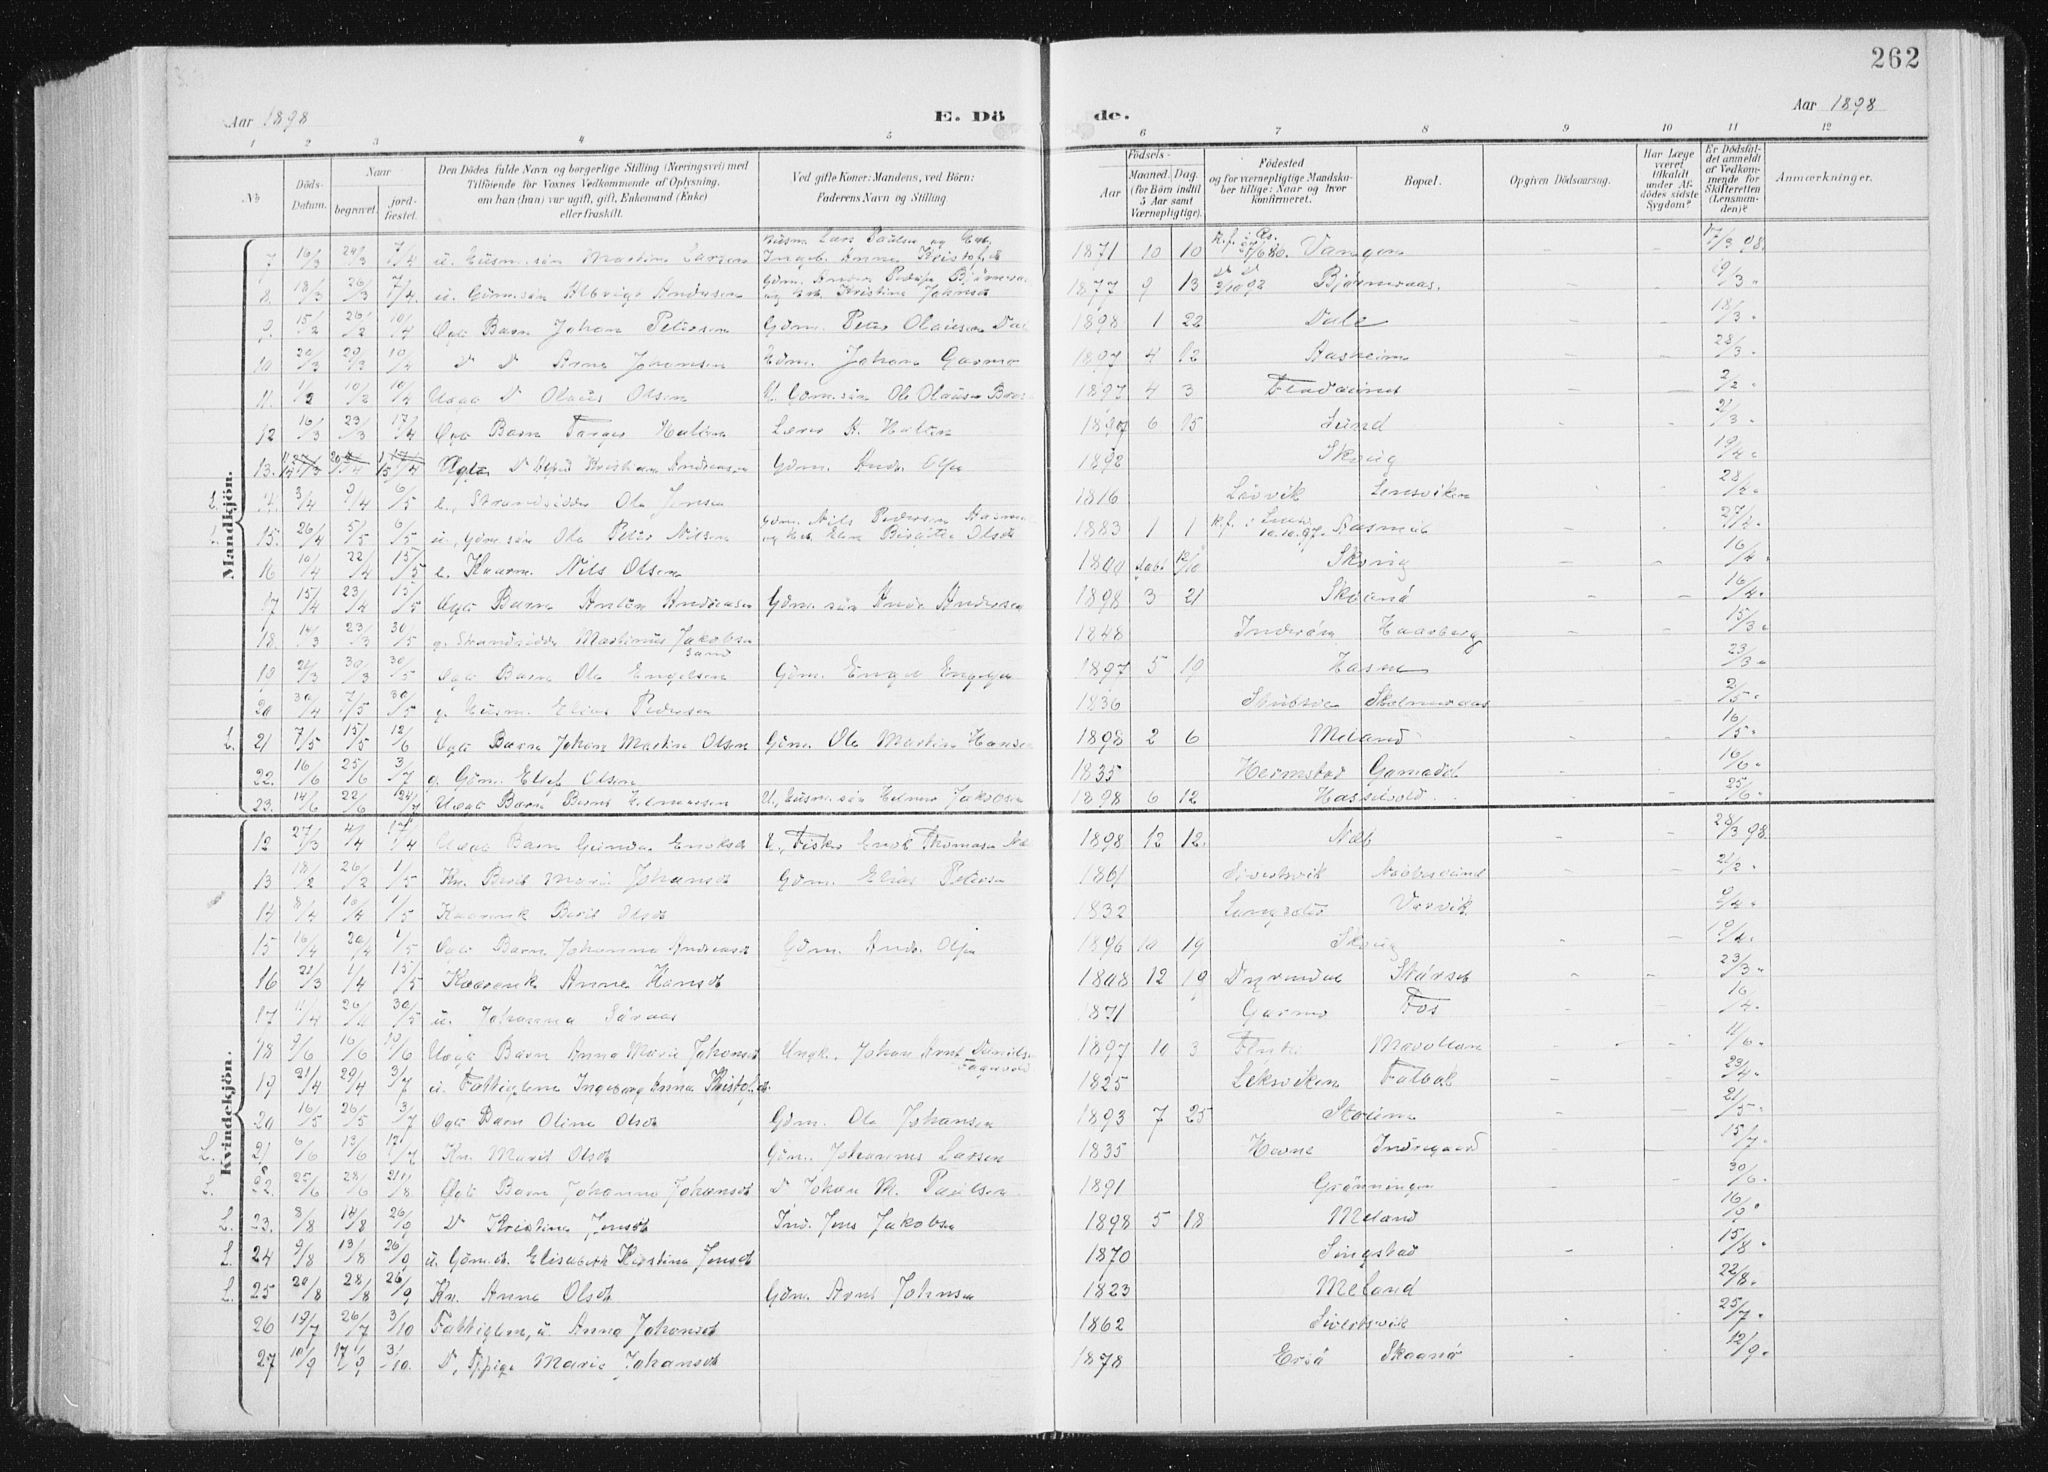 262
Aar 1898 E. Dö de. Aar 1898
1 2 3 4 5 6 7 8 9 10 11 12
No Döds-Datum. Naar begravet. jord-fæstet. Den Dödes fulde Navn og borgerlige Stilling (Næringsvei) med Tilföiende for Voxnes Vedkommende af Oplysning, om han (hun) var ugift, gift, Enkemand (Enke) eller fraskilt. Ved gifte Koner: Mandens, ved Börn: Faderens Navn og Stilling Födsels- Aar Maaned. Dag. (for Börn indtil 5 Aar samt Værnepligtige). Födested og for værnepligtige Mandska-ber tillige: Naar og hvor konfirmeret. Bopæl. Opgiven Dödsaarsag. Har Læge været tilkaldt under Af-dödes sidste Sygdom? Er Dödsfal-det anmeldt af Vedkom-mende for Skifteretten (Lensman-den)? Anmærkninger.
Mandkjön.
7 16/3 24/3 7/4 u. Husm. sön Martin Larsen Husm. Lars Paulsen og Ingeb. Anna Kristofd. 1871 10 10 Vangen - - 17/3 98.
8. 18/3 26/3 7/4 u. Gdm. sön Albrigt Andersen og Kristine Johnsd 1877 9 13 2/10 92 Bjørneraas. - - 19/3 "
9. 15/2 26/2 10/4 Ægte Barn Johan Petersen Gdm. Peter Olausen Dal 1898 1 22 Dale - - 18/3 "
10 20/3 29/3 10/4 D D Arne Johansen Gdm. Johan Garmo 1897 4 12 Aasheim - - 28/3 "
11. 1/2 10/2 10/4 Uægte D Olaus Olsen U. Gdm. sön Ole Olausen 1897 4 3 - - 2/2 "
12 16/3 23/3 17/4 Ægte Barn Torger Halten Lærer H. Halten 1897 6 15 Sund - - 21/3 "
13. Ægte D Alfred Kristian Andreassen Gdm. Andr. Olsen 1892 Skovig - - 19/4 "
14. 3/4 9/4 6/5 e. Strandsidder Ole Jensen 1816 Lövvik Lensviken - - 28/ "
15. 26/4 5/5 6/5 u. Gdm. sön Ole Peter Nilsen Gdm. Nils Pedersen og Elen Birgitte Olsdt 1883 1 1 10.10.97. Aasmul - - 27/ "
16 10/4 22/4 15/5 e. Kaarm. Nils Olsen 1800 døbt 12/10 Skovig - - 16/4 "
17 15/4 23/4 15/5 Ægte Barn Anton Andersen Gdm. sön Andr. Andersen 1898 3 21 Skoanö - - 16/4 "
18. 14/3 23/3 30/5 g. Strandsidder Martinus Jakobsen 1848 Inderöen Haarberg - - 15/3 "
Sand
19 21/3 30/3 30/5 Ægte Barn Ole Engelsen Gdm. Engel Engelsen 1897 5 19 Hasne - - 23/3 "
20 30/4 7/5 30/5 g. Husm. Elias Pedersen 1836 - - 2/5 "
L. 21 7/5 15/5 12/6 Ægte Barn Johan Martin Olsen Gdm. Ole Martin Hansen 1898 2 6 Meland - - 16/5 "
22. 16/6 25/6 3/7 g. Gdm. Ellef Olsen 1835 Hermstad Gamadal - - 16/6 "
23. 14/6 22/6 24/7 Uægte Barn Bernt Helmersen U. Husm. sön Helmer Jakobsen 1898 6 12 Hasselvold - - 25/6 "
Kvindekjön.
12 27/3 4/4 17/4 Uægte Barn Gunda Enoksdt U. Fisker Enok Thomasen 1898 12 12 Næb - - 28/3 98.
13 18/2 26/2 1/5 Kn. Berit Marie Johansdt Gdm. Elias Petersen 1861 Sivertsvik - - 21/2 "
14 8/4 16/4 1/5 Kaarenk Berit Olsdt 1832 Vasvik - - 9/4 "
15 16/4 20/4 1/5 Ægte Barn Johanna Andreasdt Gdm. Andr. Olsen 1896 10 19 Skovig - - 19/4 "
16 21/3 1/4 15/5 Kaarenk Anne Hansdt 1808 12 19 Dyrendal Störset - - 23/3 "
17 11/4 26/4 30/5 u. Johanna Söraas 1871 Garmo Fos - - 16/4 "
18 9/6 16/6 19/6 Uægte Barn Anna Marie Johansdt Ungk. Johan Arnt Danielsen 1897 10 3 - - 11/6 "
Fagervold
19 21/4 29/4 3/7 u. Fattiglem Ingeborg Anna Kristofd. 1825 Leksviken - - 23/4 "
20 16/5 26/5 3/7 Ægte Barn Oline Olsdt Gdm. Ole Johansen 1893 7 25 - - 21/5 "
L. 21 6/6 13/6 17/7 Kn. Marit Olsdt Gdm. Johannes Larsen 1835 Hevne Indregaard - - 15/7 "
L. 22. 25/6 28/6 21/8 Ægte Barn Johanna Johansdt D Johan M. Paulsen 1891 Grönningen - - 30/6 "
L. 23. 8/8 14/8 26/9 D Kristine Jensdt Ind. Jens Jakobsen 1898 5 18 Meland 16/9 "
L. 24 9/8 13/8 26/9 u. Gdm. d. Elisabeth Kirstine Jensdt 1870 Singstad - 15/8 "
L. 25 20/8 28/8 26/9 Kn. Anne Olsdt Gdm. Arnt Johnsen 1823 Meland - - 22/8 "
26 19/7 26/7 3/10 Fattiglem, u. Anna Johansdt 1862 Sivertsvik - - 25/7 "
27 10/9 17/9 3/10. D, Marie Johansdt 1878 Ersö Skoanö - - 12/9 "